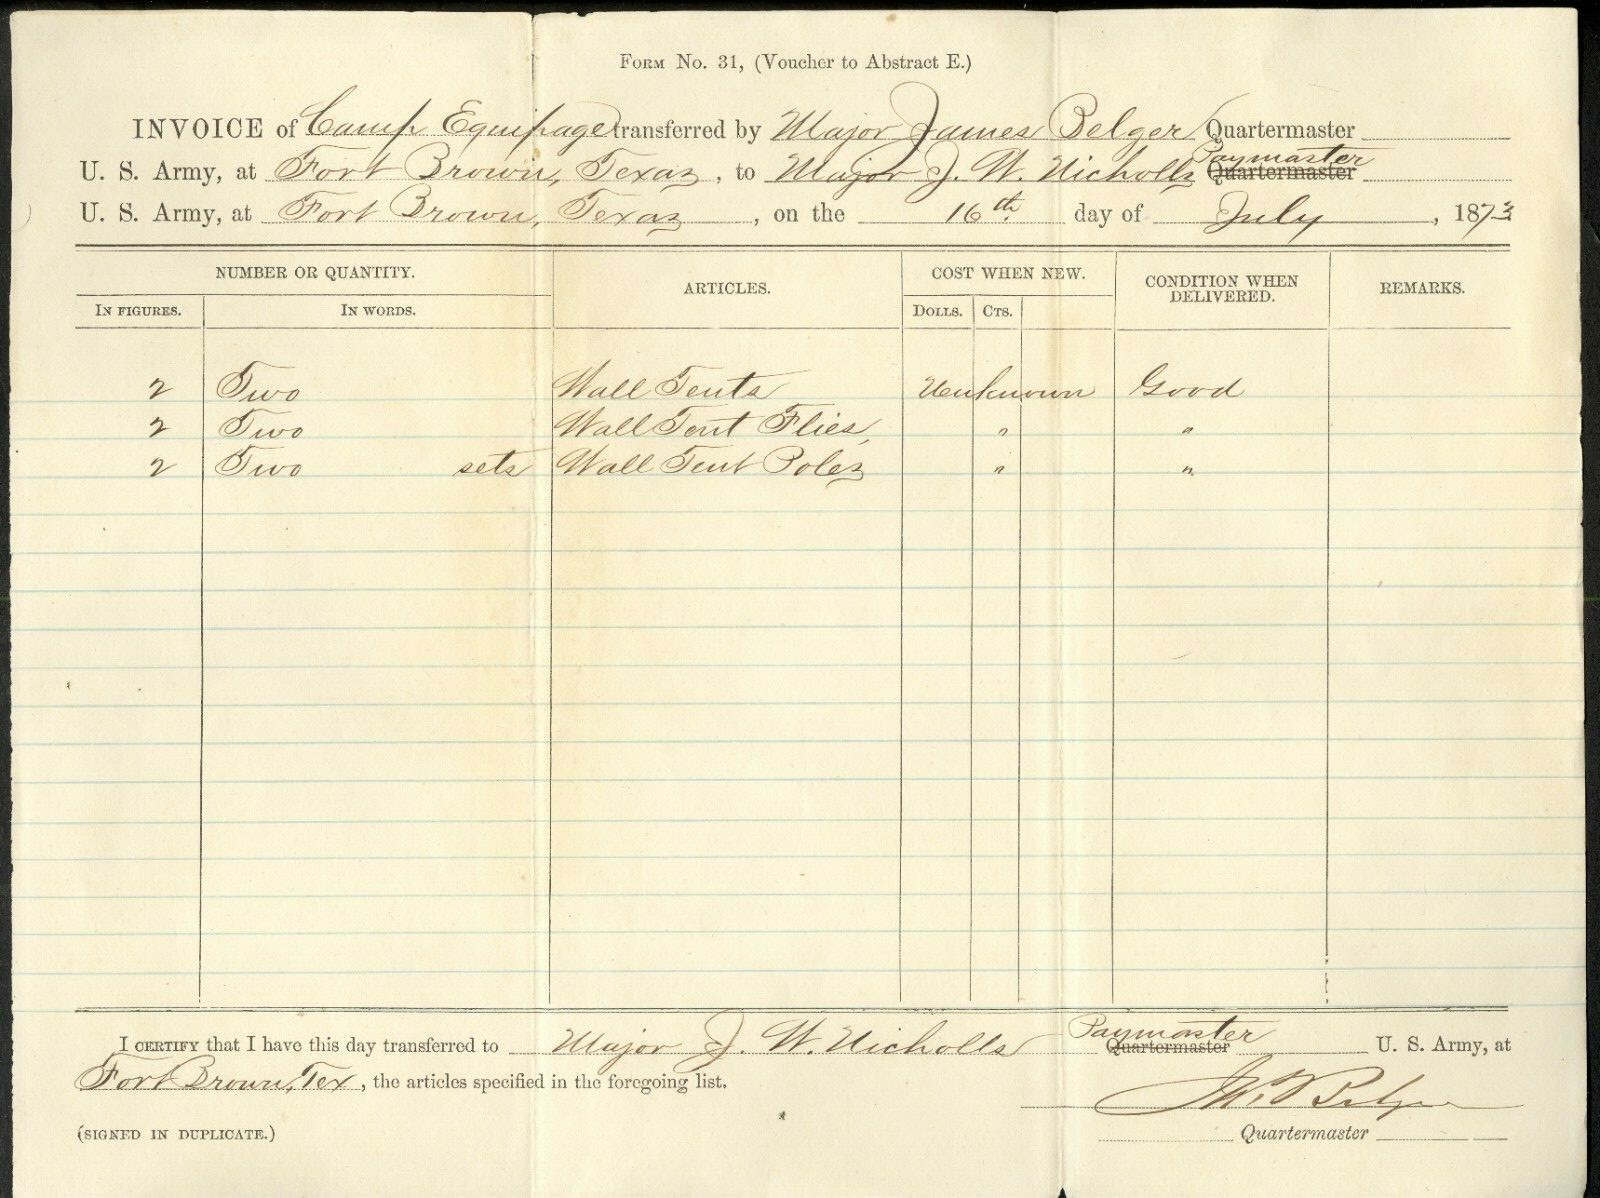 Form No. 31, (Voucher to Abstract E.)
INVOICE of Camp Equipage transferred by Major James Belger Quartermaster
Paymaster
U. S. Army, at Fort Brown, Texas, to Major J. W. Nicholls Quartermaster
U. S. Army, at Fort Brown, Texas, on the 16th day of July, 1873
NUMBER OR QUANTITY. ARTICLES. COST WHEN NEW. CONDITION WHEN DELIVERED. REMARKS.
In figures. In words. Dolls. Cts.
2 Two Wall Tents Unknown Good
2 Two Wall Tent Flies, " "
2 Two sets Wall Tent Poles " "
Paymaster
I certify that I have this day transferred to Major J. W. Nicholls Quartermaster U. S. Army, at
Fort Brown, Tex, the articles specified in the foregoing list.
Belger
(SIGNED IN DUPLICATE.) Quartermaster